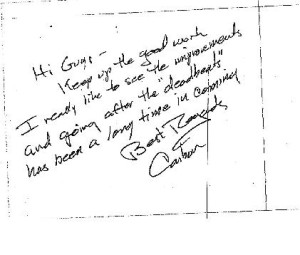 Hi Guys -
Keep up the good work
I really like to see the improvements
and going after the "deadbeats"
has been a long time in coming
Best Regards